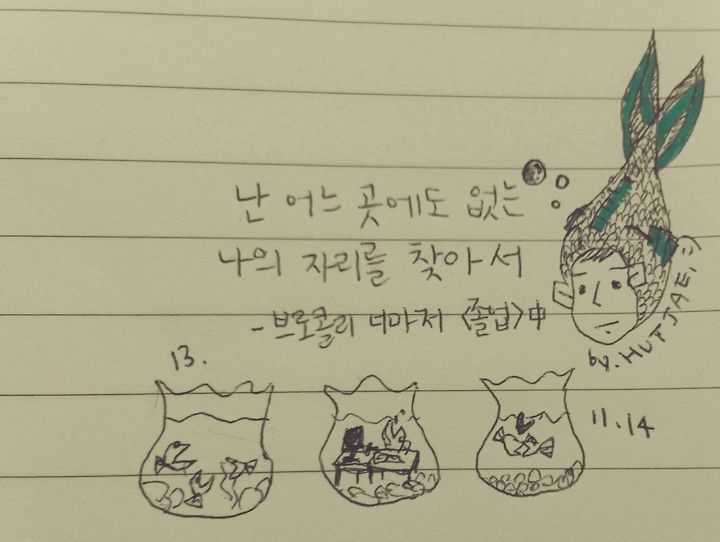 난 어느 곳에도 없는
나의 자리를 찾아서
- 브로콜리 너마저 <졸업> 中
by. HUT JAE, :)
13.
11.14